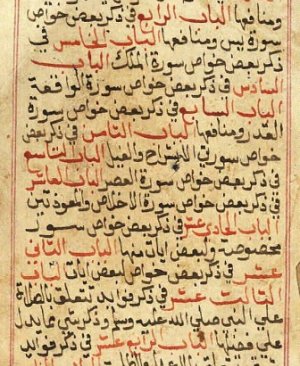 ومنافعها الباب الرابع في ذكر بعض خواص
سورة يس ومنافعها الباب الخامس في
ذكر بعض خواص سورة الملك الباب
السادس في ذكر بعض خواص سورة الواقعة
الباب السابع في ذكر بعض خواص سورة
القدر ومنافعها الباب الثامن في ذكر بعض
خواص سورتي الانشراح والفيل الباب التاسع
في ذكر بعض خواص سورة العصر الباب العاشر
في ذكر بعض خواص سورة الاخلاص والمعوذتين
الباب الحادي عشر في ذكر بعض خواص سور
مخصوصة ولبعض ايات منها الباب الثاني
عشر في ذكر بعض خواص لبعض ايات الباب
الثالث عشر في ذكر فوايد تتعلق بالصلاة
علي النبي صلي الله عليه وسلم وذكر شي مما يدل
علي فضلها الباب الرابع عشر في ذكر فوايد